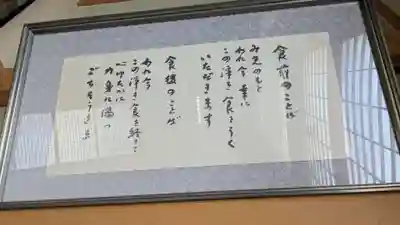 食前のことば
み光のもと
われ今 幸に
この浄き 食をうく
いただきます
食後のことば
われ今
この浄き 食を終りて
心ゆたかに
力身に満つ
ごちそうさま